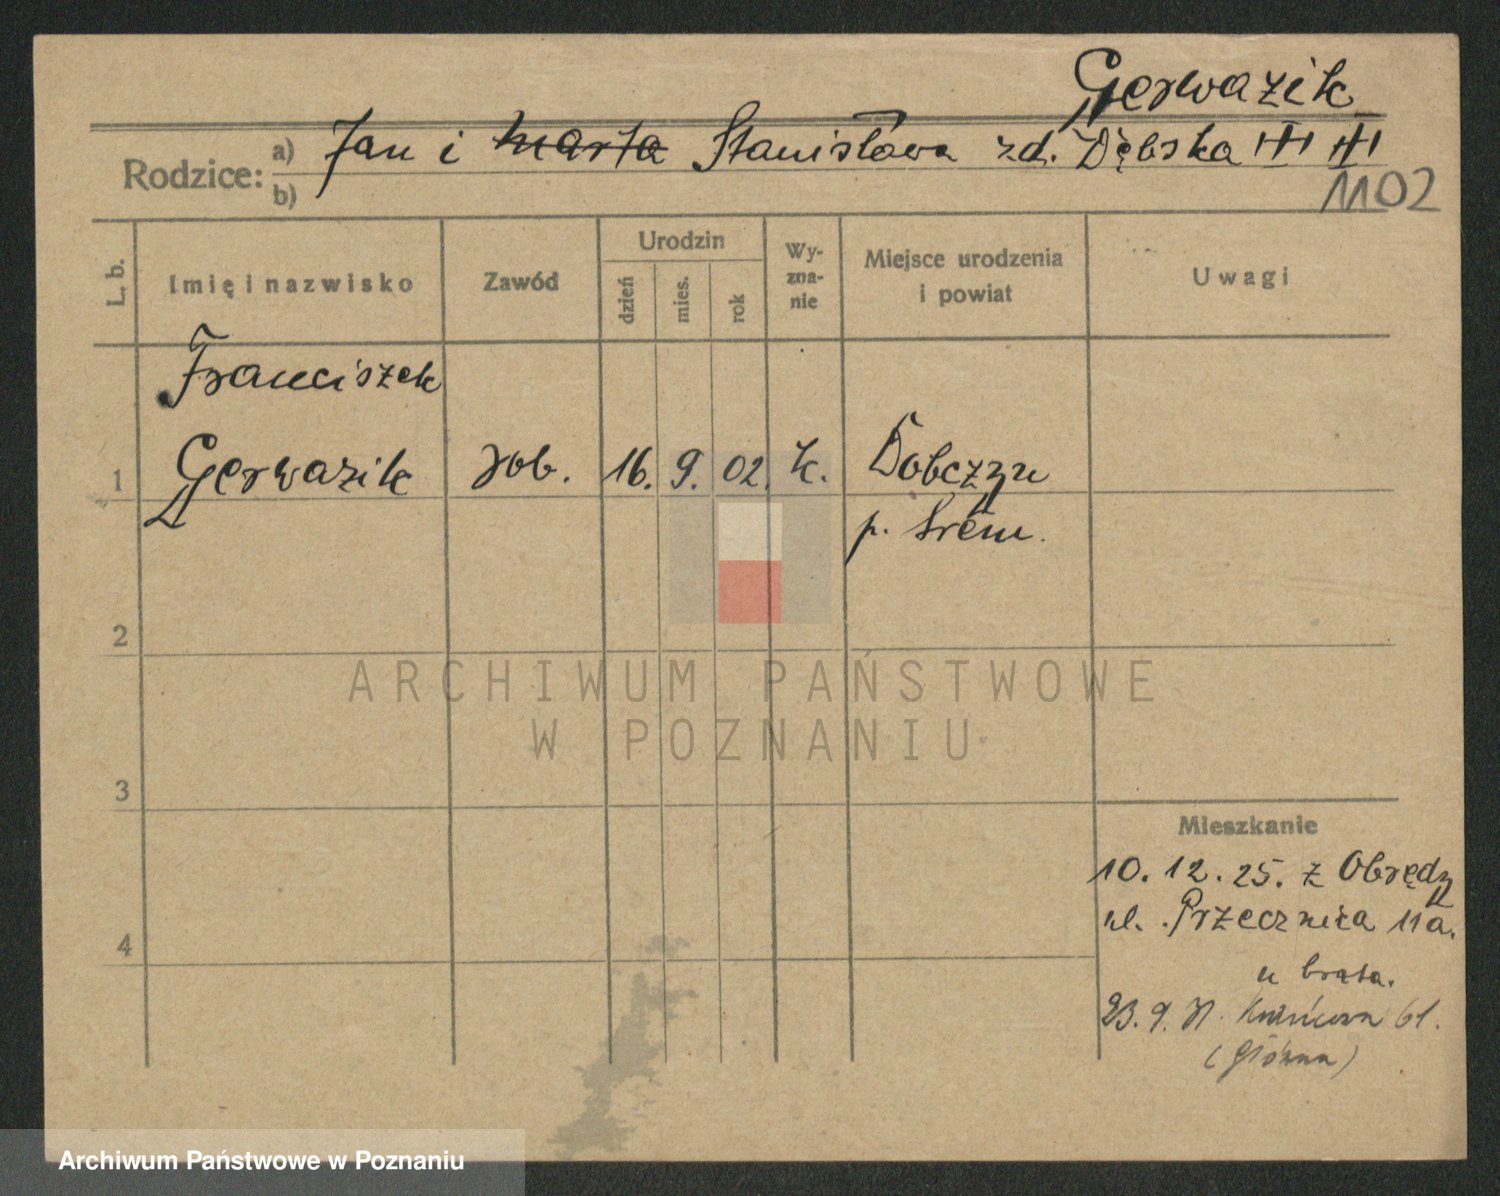 Gerwazik
Rodzice: a) Jan i Marta Stanisława zd. Dębska
b)
1102
L. b.
Imię i nazwisko
Zawód
Urodzin
dzień
mies.
rok
Wy-
zna-
nie
Miejsce urodzenia
i powiat
Uwagi
Franciszek
1 Gerwazik rob. 16. 9. 02. k. Dobczyn
p. Śrem.
2
3
4
Mieszkanie
10. 12. 25. z Obrędy
ul. Przecznica 11a.
u brata.
23. 9. 61.
(Główna)
ARCHIWUM PAŃSTWOWE
W POZNANIU
Archiwum Państwowe w Poznaniu